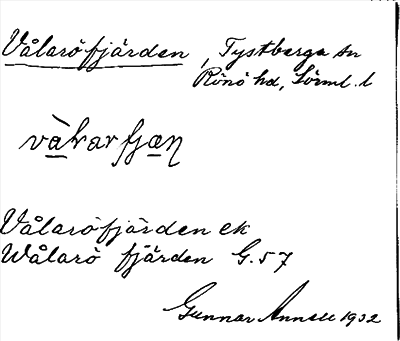 Vålaröfjärden, Tystberga sn
Rönö hd, Sörml. l
Vålaröfjärden ek
Wålarö fjärden G.57
Gunnar Annell 1932